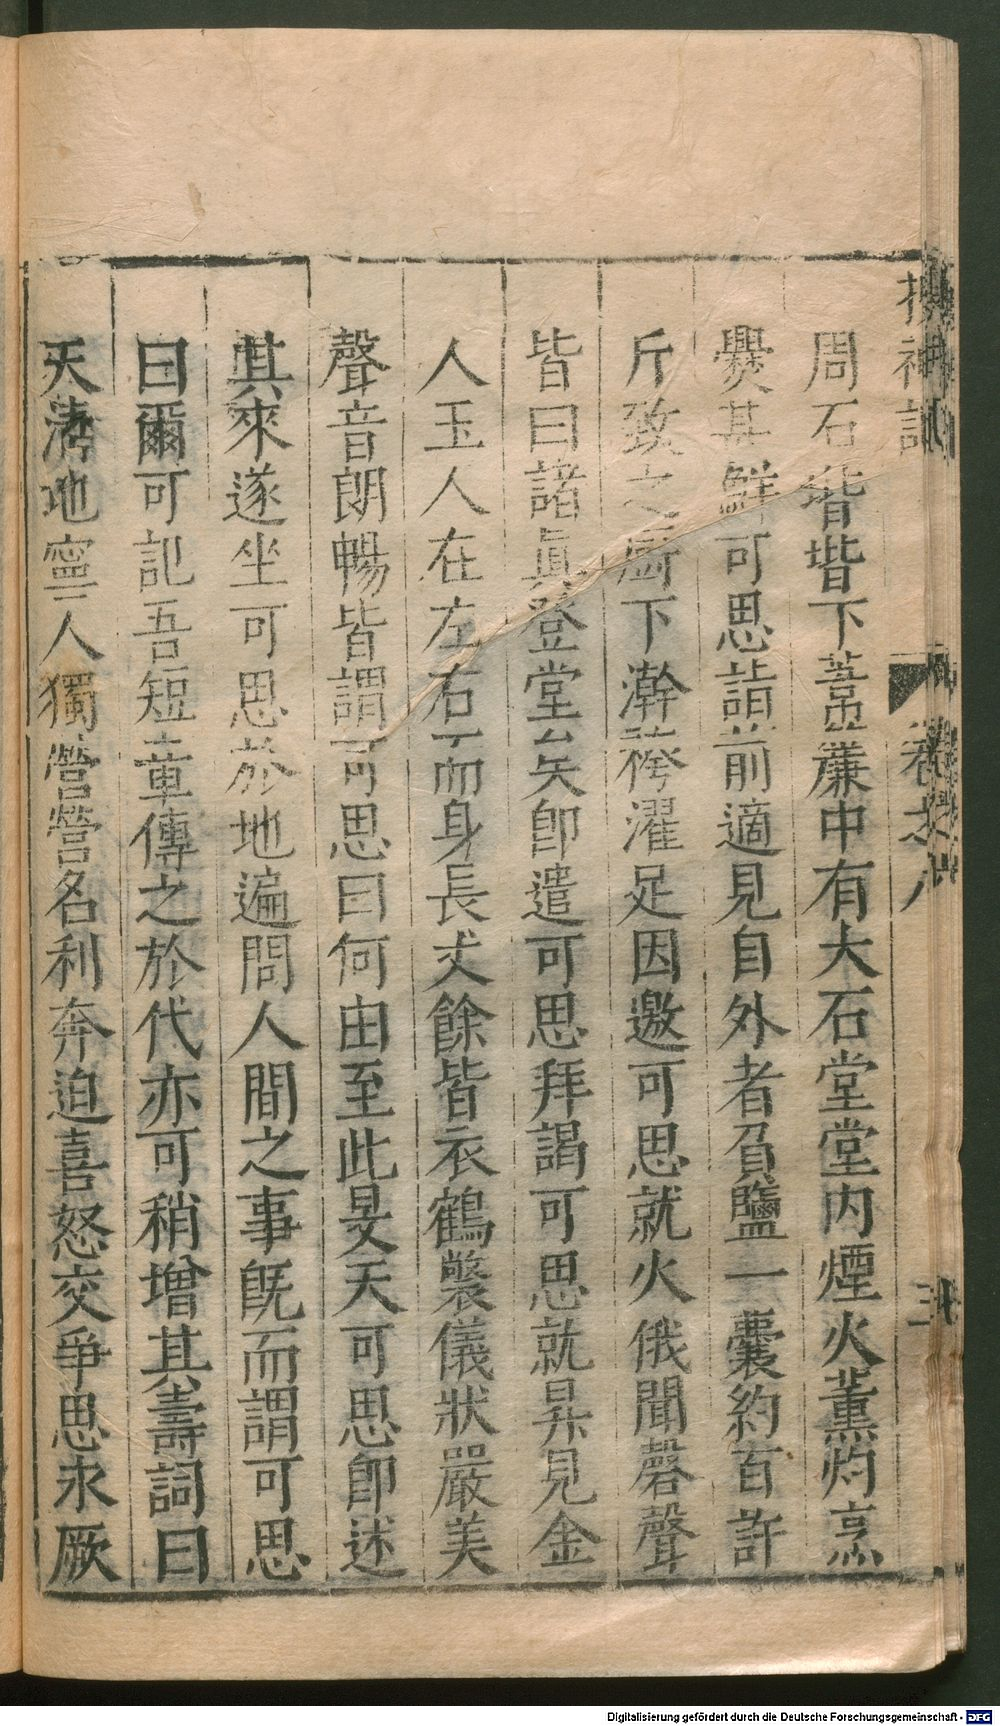 搜神記
卷之八
三
周石堦堦下葦簾中有大石堂堂內煙火薰灼烹
爨其鮮可思詣前適見自外者負鹽一囊約百許
斤致之廚下澣袴濯足因邀可思就火俄聞磬聲
皆曰諸眞登堂矣即遣可思拜謁可思就昇見金
人玉人在左右而身長丈餘皆衣鶴氅儀狀嚴美
聲音朗暢皆謂可思曰何由至此旻天可思即述
其來遂坐可思於地遍問人間之事旣而謂可思
曰爾可記吾短章傳之於代亦可稍增其壽詞曰
天淸地寧人獨營營名利奔迫喜怒交爭思永厥
Digitalisierung gefördert durch die Deutsche Forschungsgemeinschaft - DFG